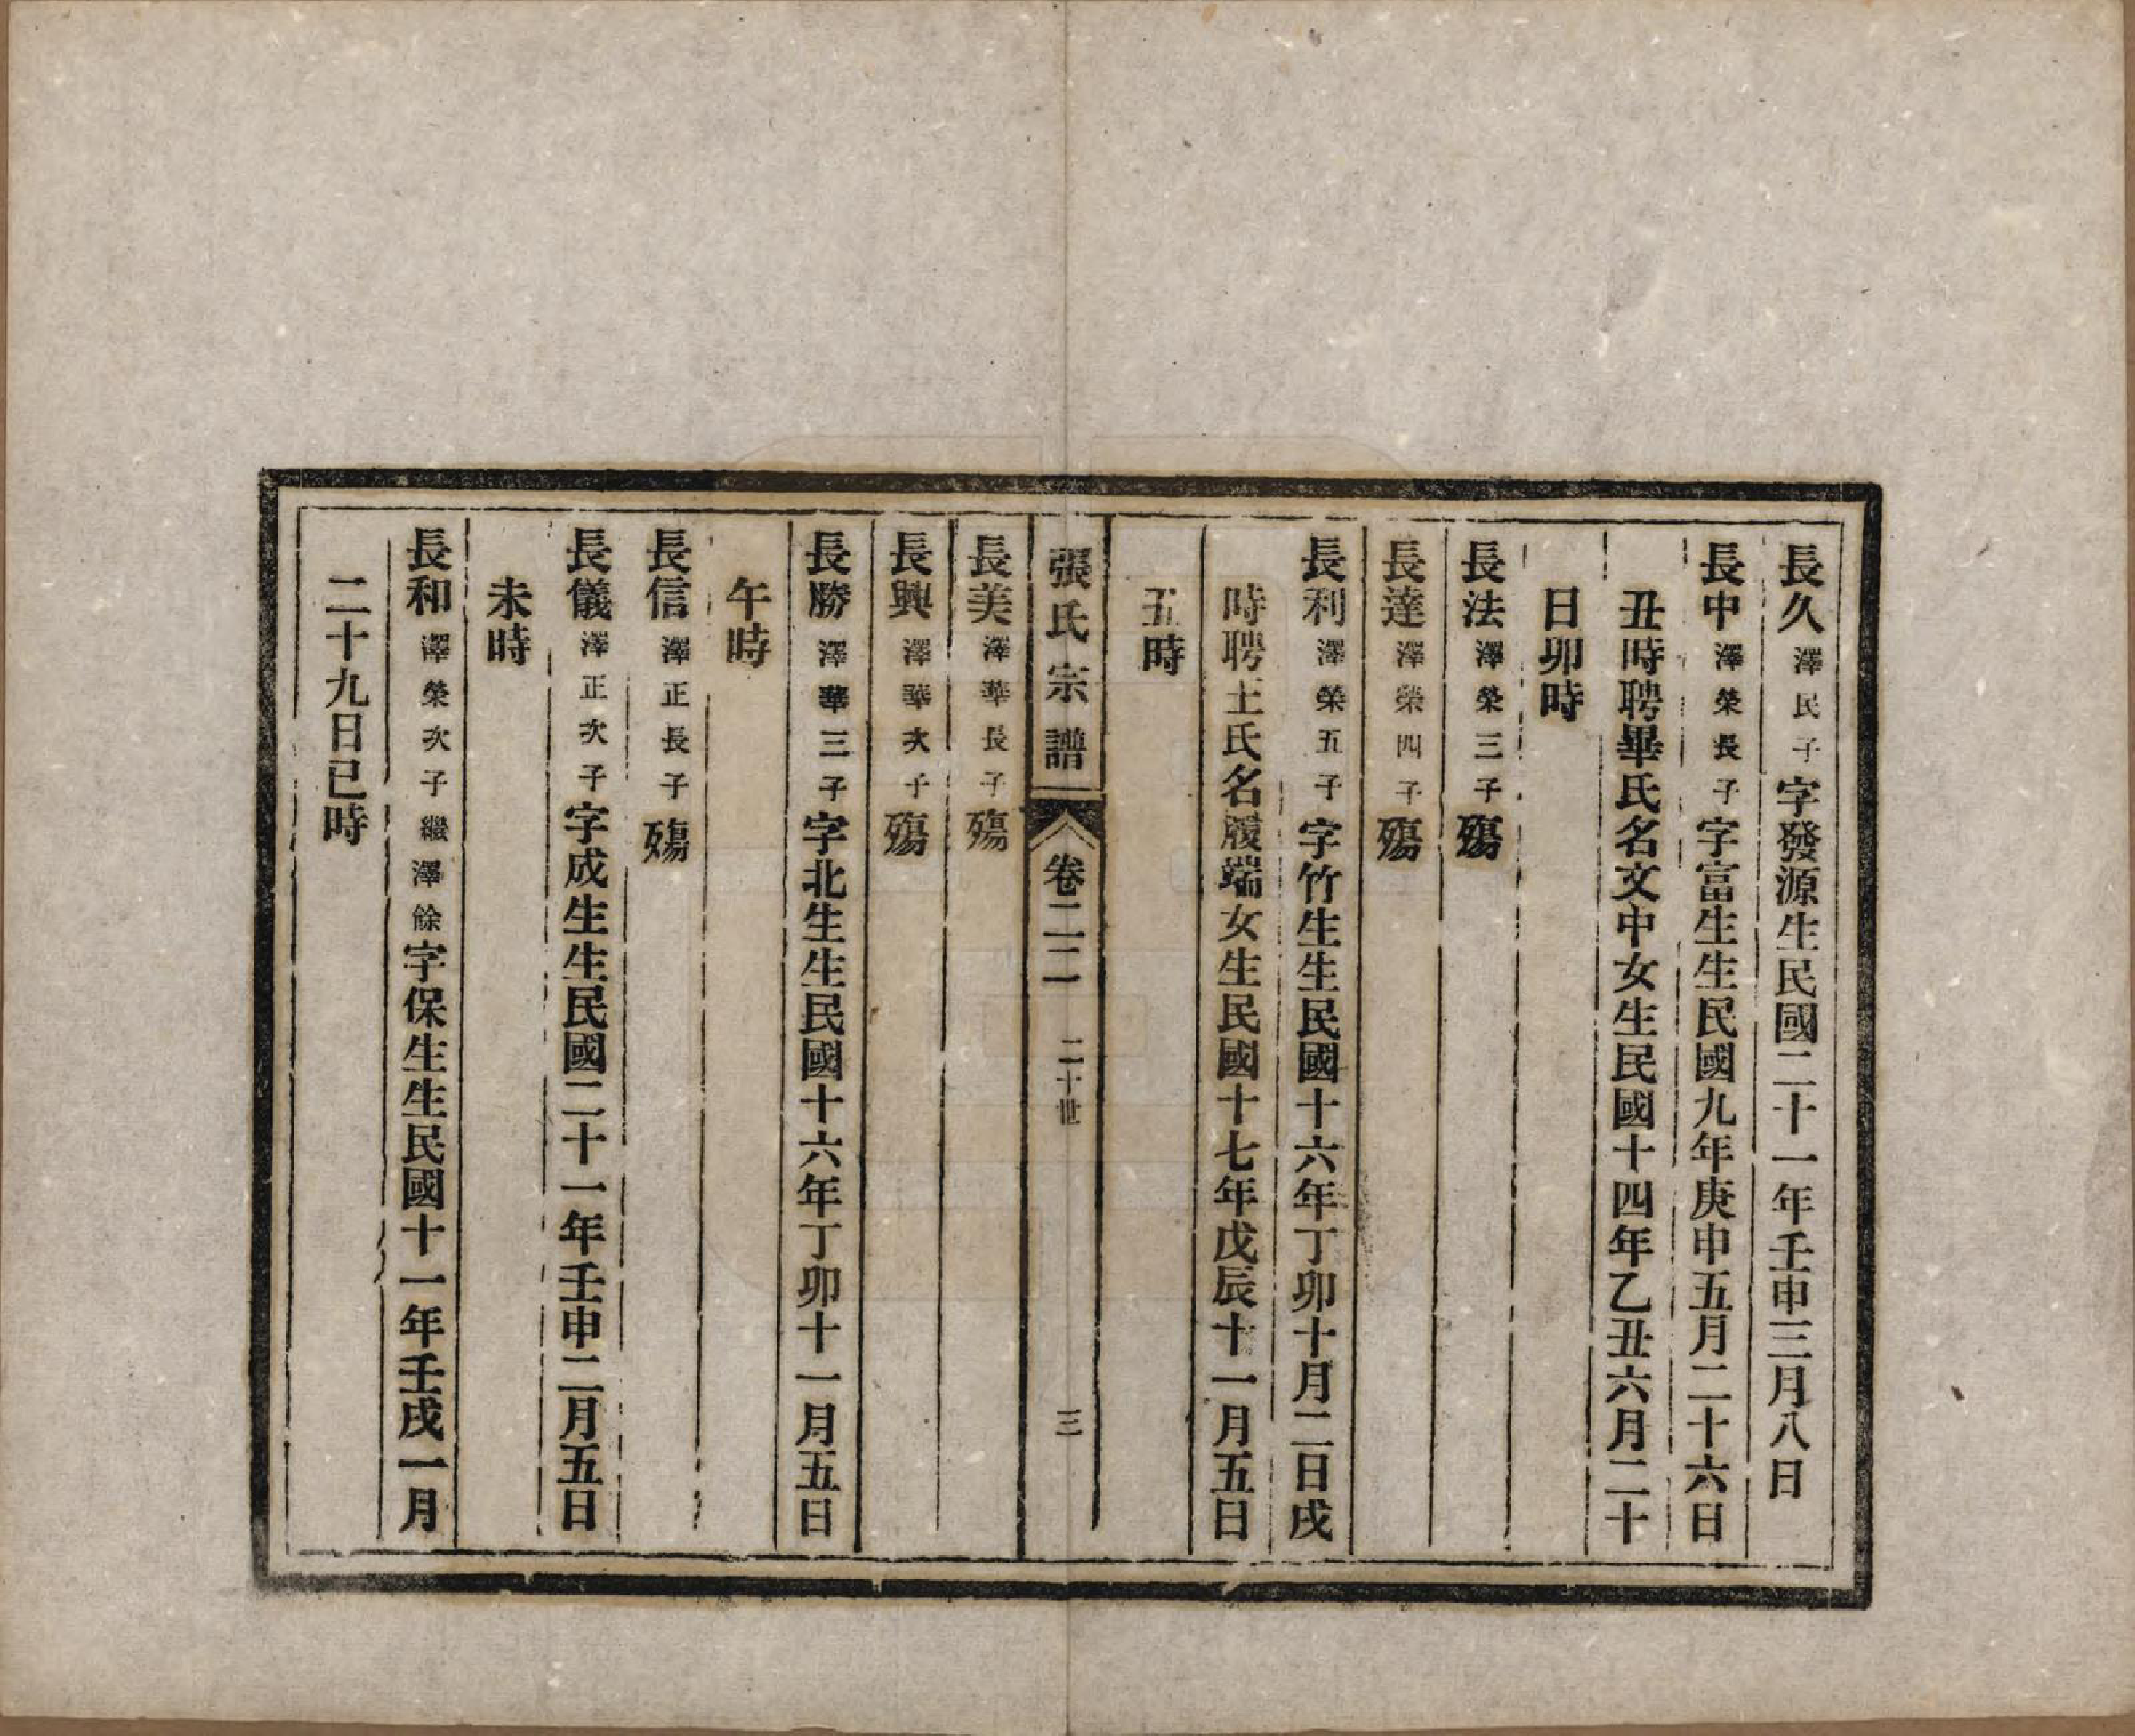 長久澤民子字發源生民國二十一年壬申三月八日
長中澤榮長子字富生生民國九年庚申五月二十六日
丑時聘畢氏名文中女生民國十四年乙丑六月二十
日卯時
長法澤榮三子殤
長達澤榮四子殤
長利澤榮五子字竹生生民國十六年丁卯十月二日戌
時聘王氏名履端女生民國十七年戊辰十一月五日
五時
張氏宗譜 卷二二 二十世 三
長美澤華長子殤
長興澤華次子殤
長勝澤華三子字北生生民國十六年丁卯十一月五日
午時
長信澤正長子殤
長儀澤正次子字成生生民國二十一年壬申二月五日
未時
長和澤榮次子繼澤餘字保生生民國十一年壬戌一月
二十九日巳時